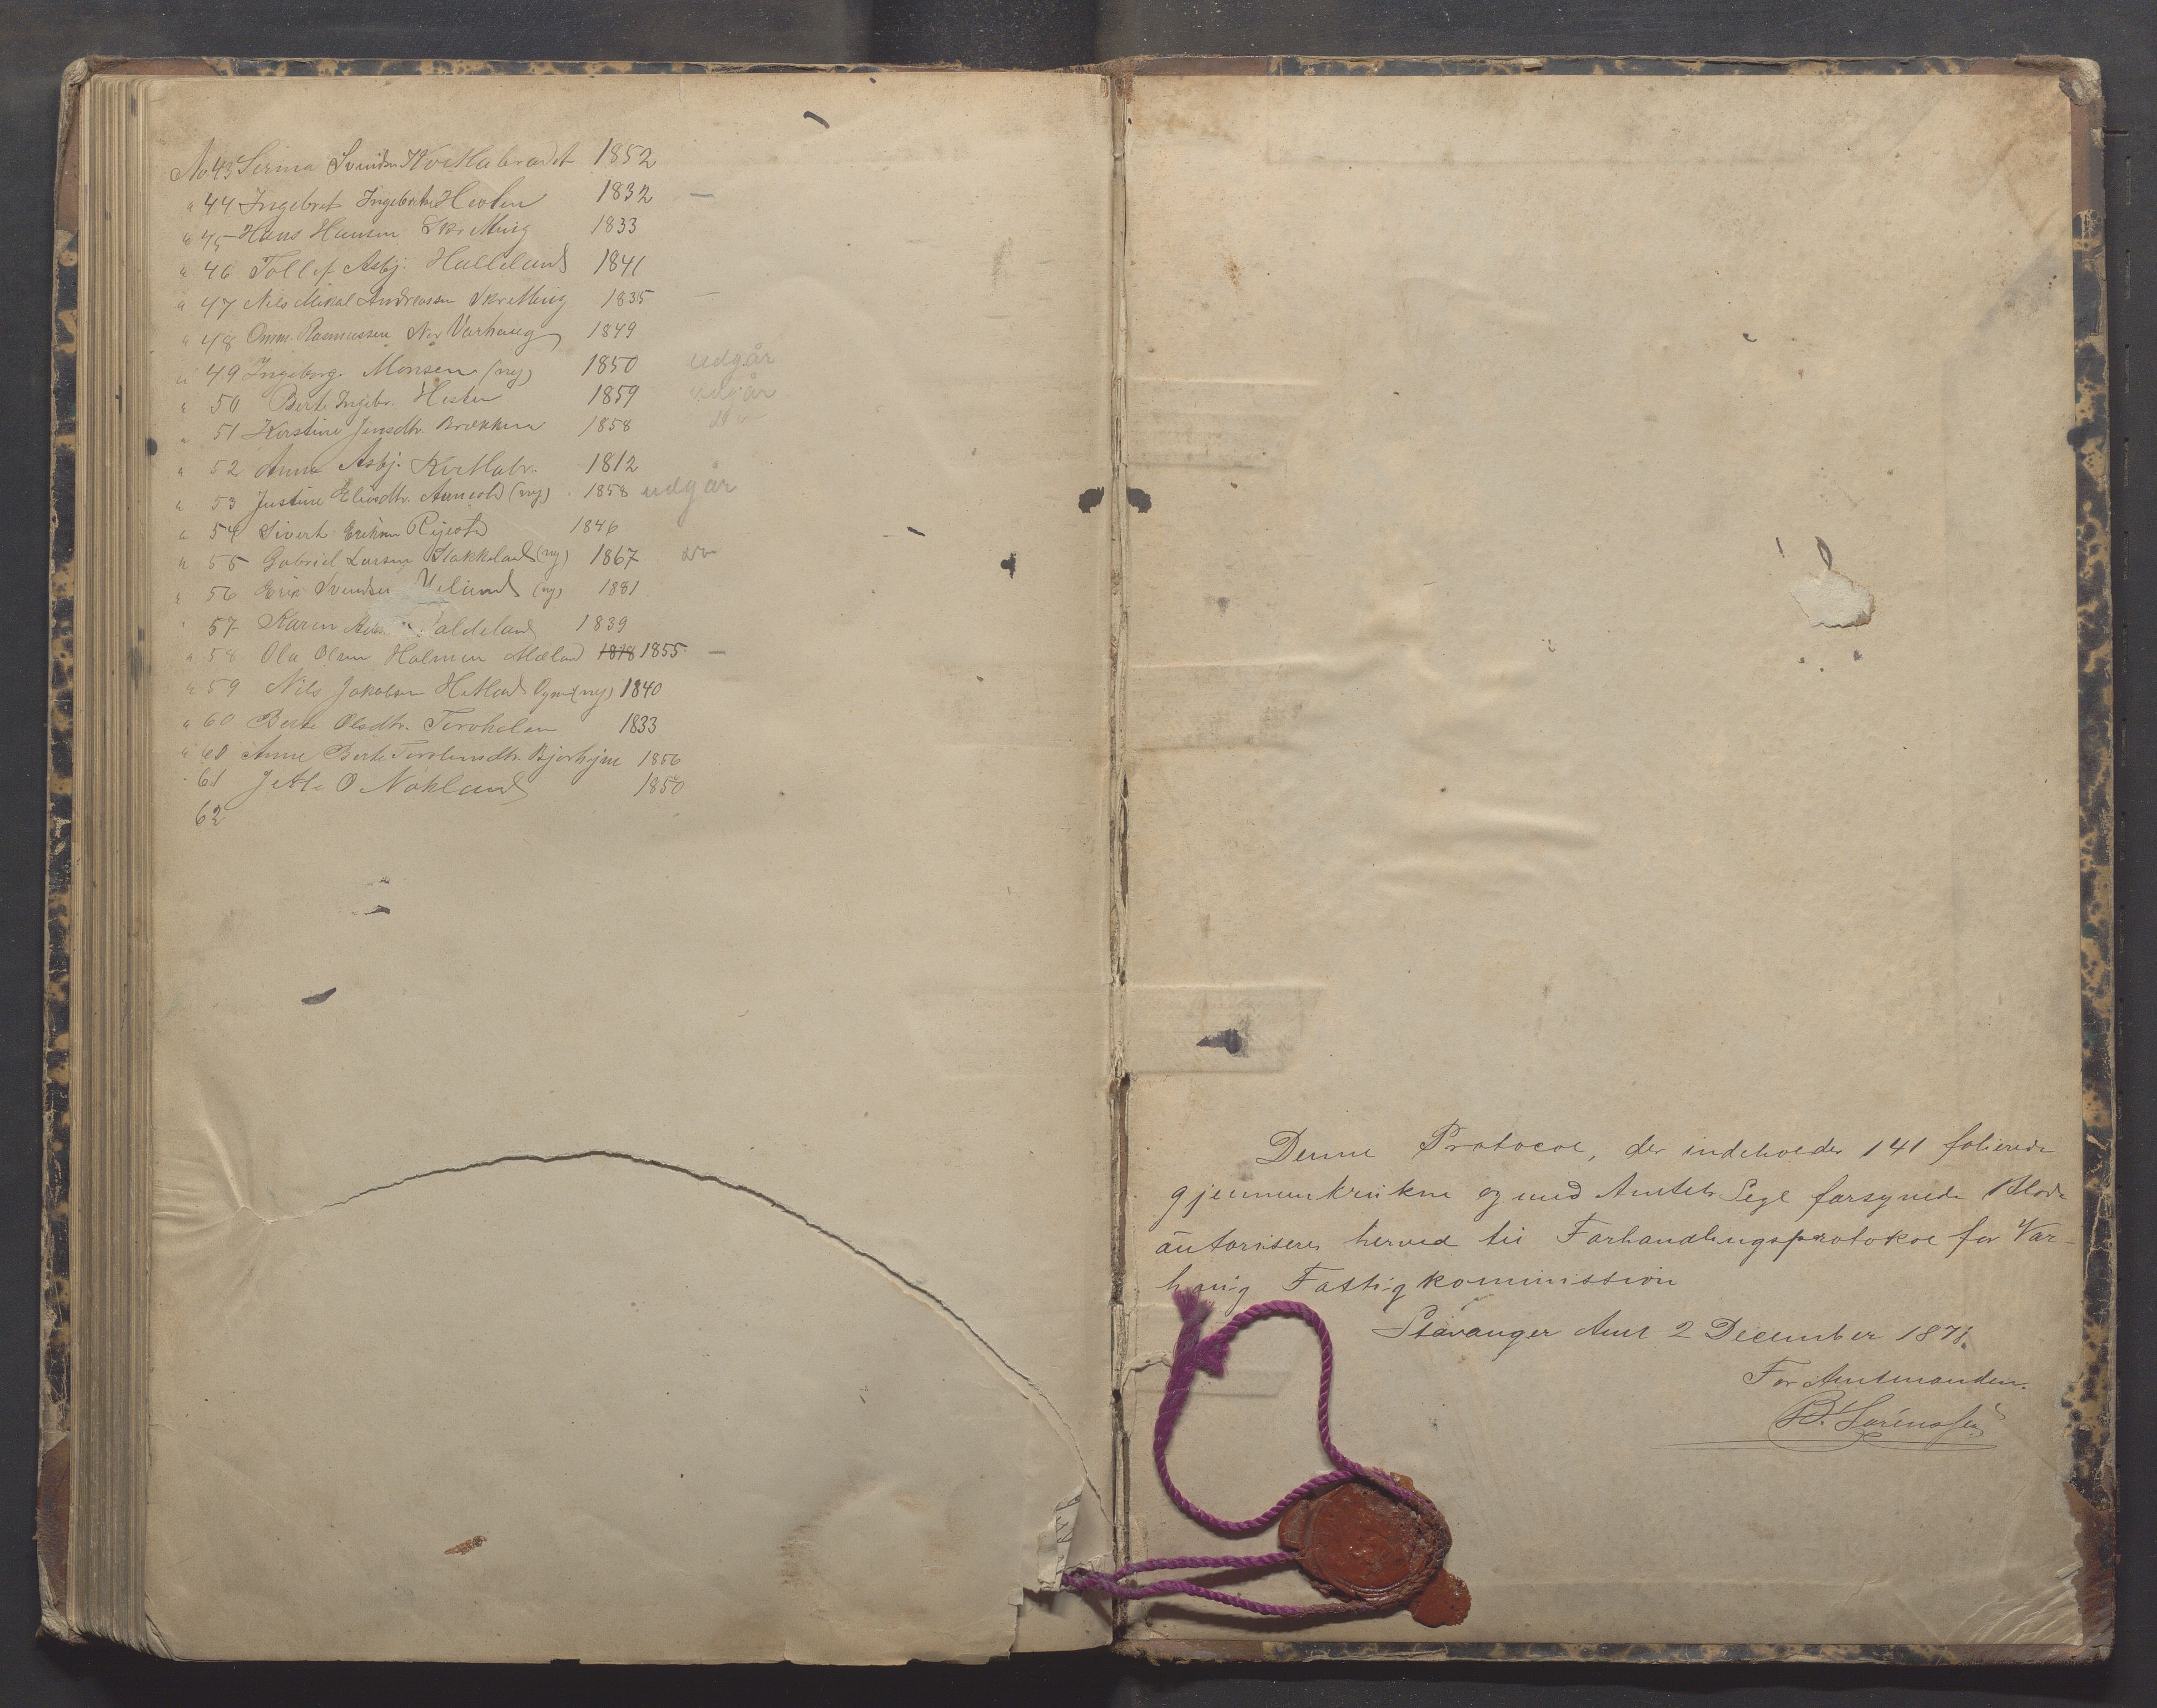 No 43 Serina Svendsen Kvitlabradet 1852
" 44 Ingebret Ingebretsen Hesten 1832 —
" 45 Hans Hansen Skretting 1833
" 46 Tollef Asbj. Halleland 1841
" 47 Nils Mikal Andreassen Skretting 1835 —
" 48 Omm. Rasmussen Nor Varhaug 1849
" 49 Ingeborg Monsen (ny) 1850 udgår
" 50 Berte Ingebr. Hesten 1859 udgår
" 51 Kirstine Jensdtr. Brækken 1858
" 52 Anna Asbj. Kvitlabr. 1812
" 53 Justine Eliasdtr. (ny) 1858 udgår
" 54 Sivert Eriksen 1846
" 55 Gabriel Larsen Stakkeland (ny) 1867
" 56 Erik Svendsen (ny) 1881
" 57 Karen 1839
" 58 Ola Olsen Holmen Mæland 1818 1855 —
" 59 Nils Jakobsen Hetland Ogne (ny) 1840
" 60 Berte Olsdtr. Torvholen 1833
" 60 Anne Berte 1856
" 61 Jetle O Nokland 1850
62
Denne Protocol, der indeholder 141 folierede
gjennemtrukne og med Amtets Segl forsynede Blade
autoriseres herved til Forhandlingsprotokol for Var-
haug Fattigkommission
Stavanger Amt 2 December 1871.
For Amtmanden.
B. Sørenssen